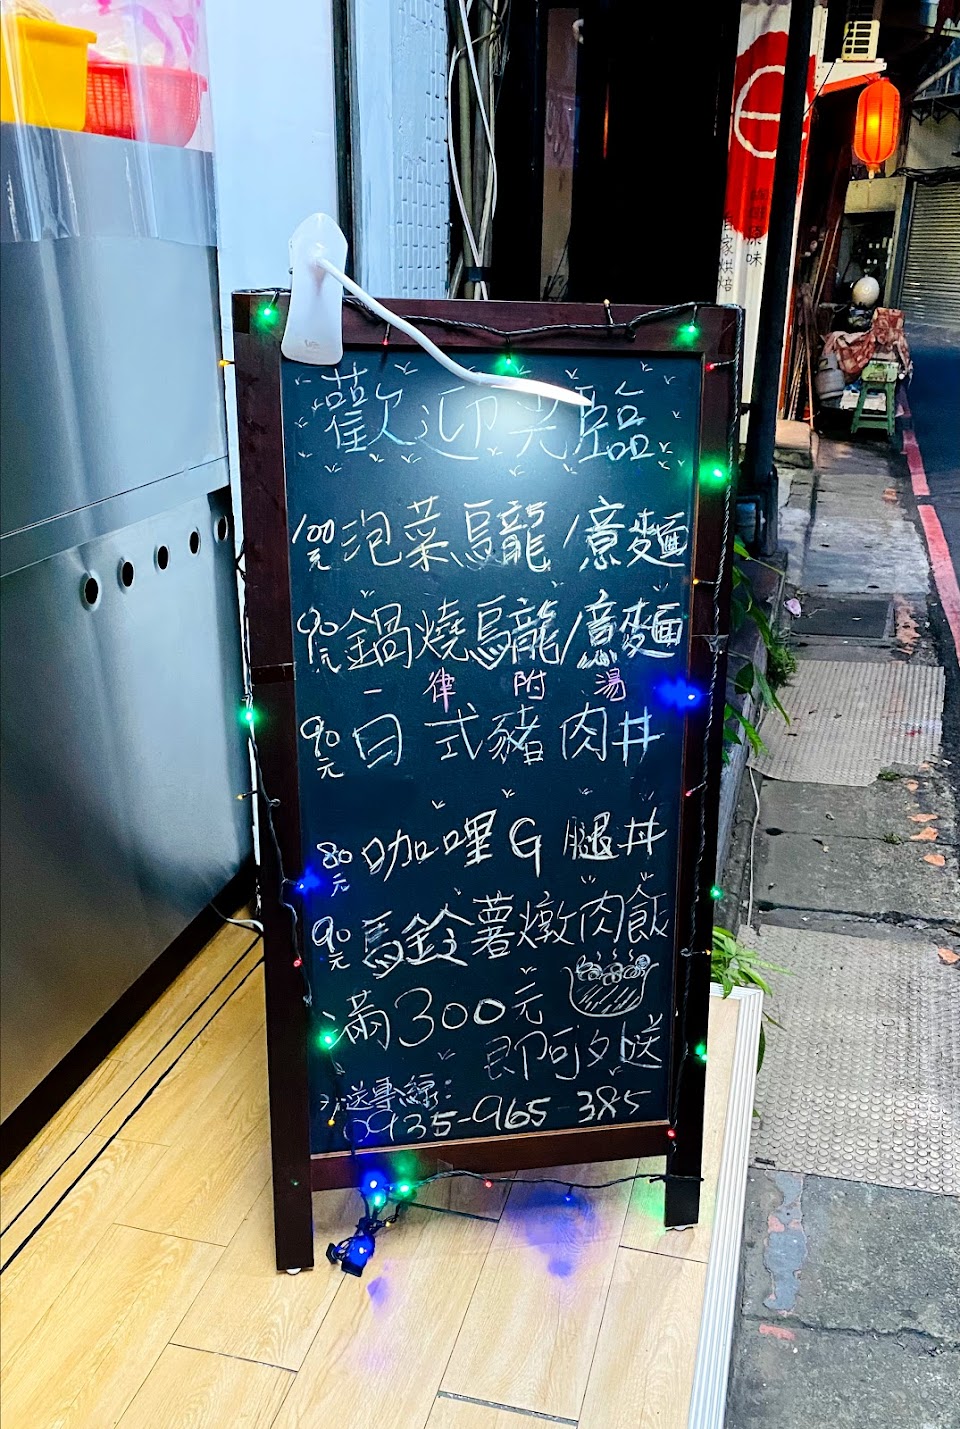 歡迎光臨
100元 泡菜烏龍/意麵
90元 鍋燒烏龍/意麵
一律附湯
90元 日式豬肉丼
80元 咖哩G腿丼
90元 馬鈴薯燉肉飯
滿300元
即可外送
外送專線:
0935-965-385
原味
自家烘焙